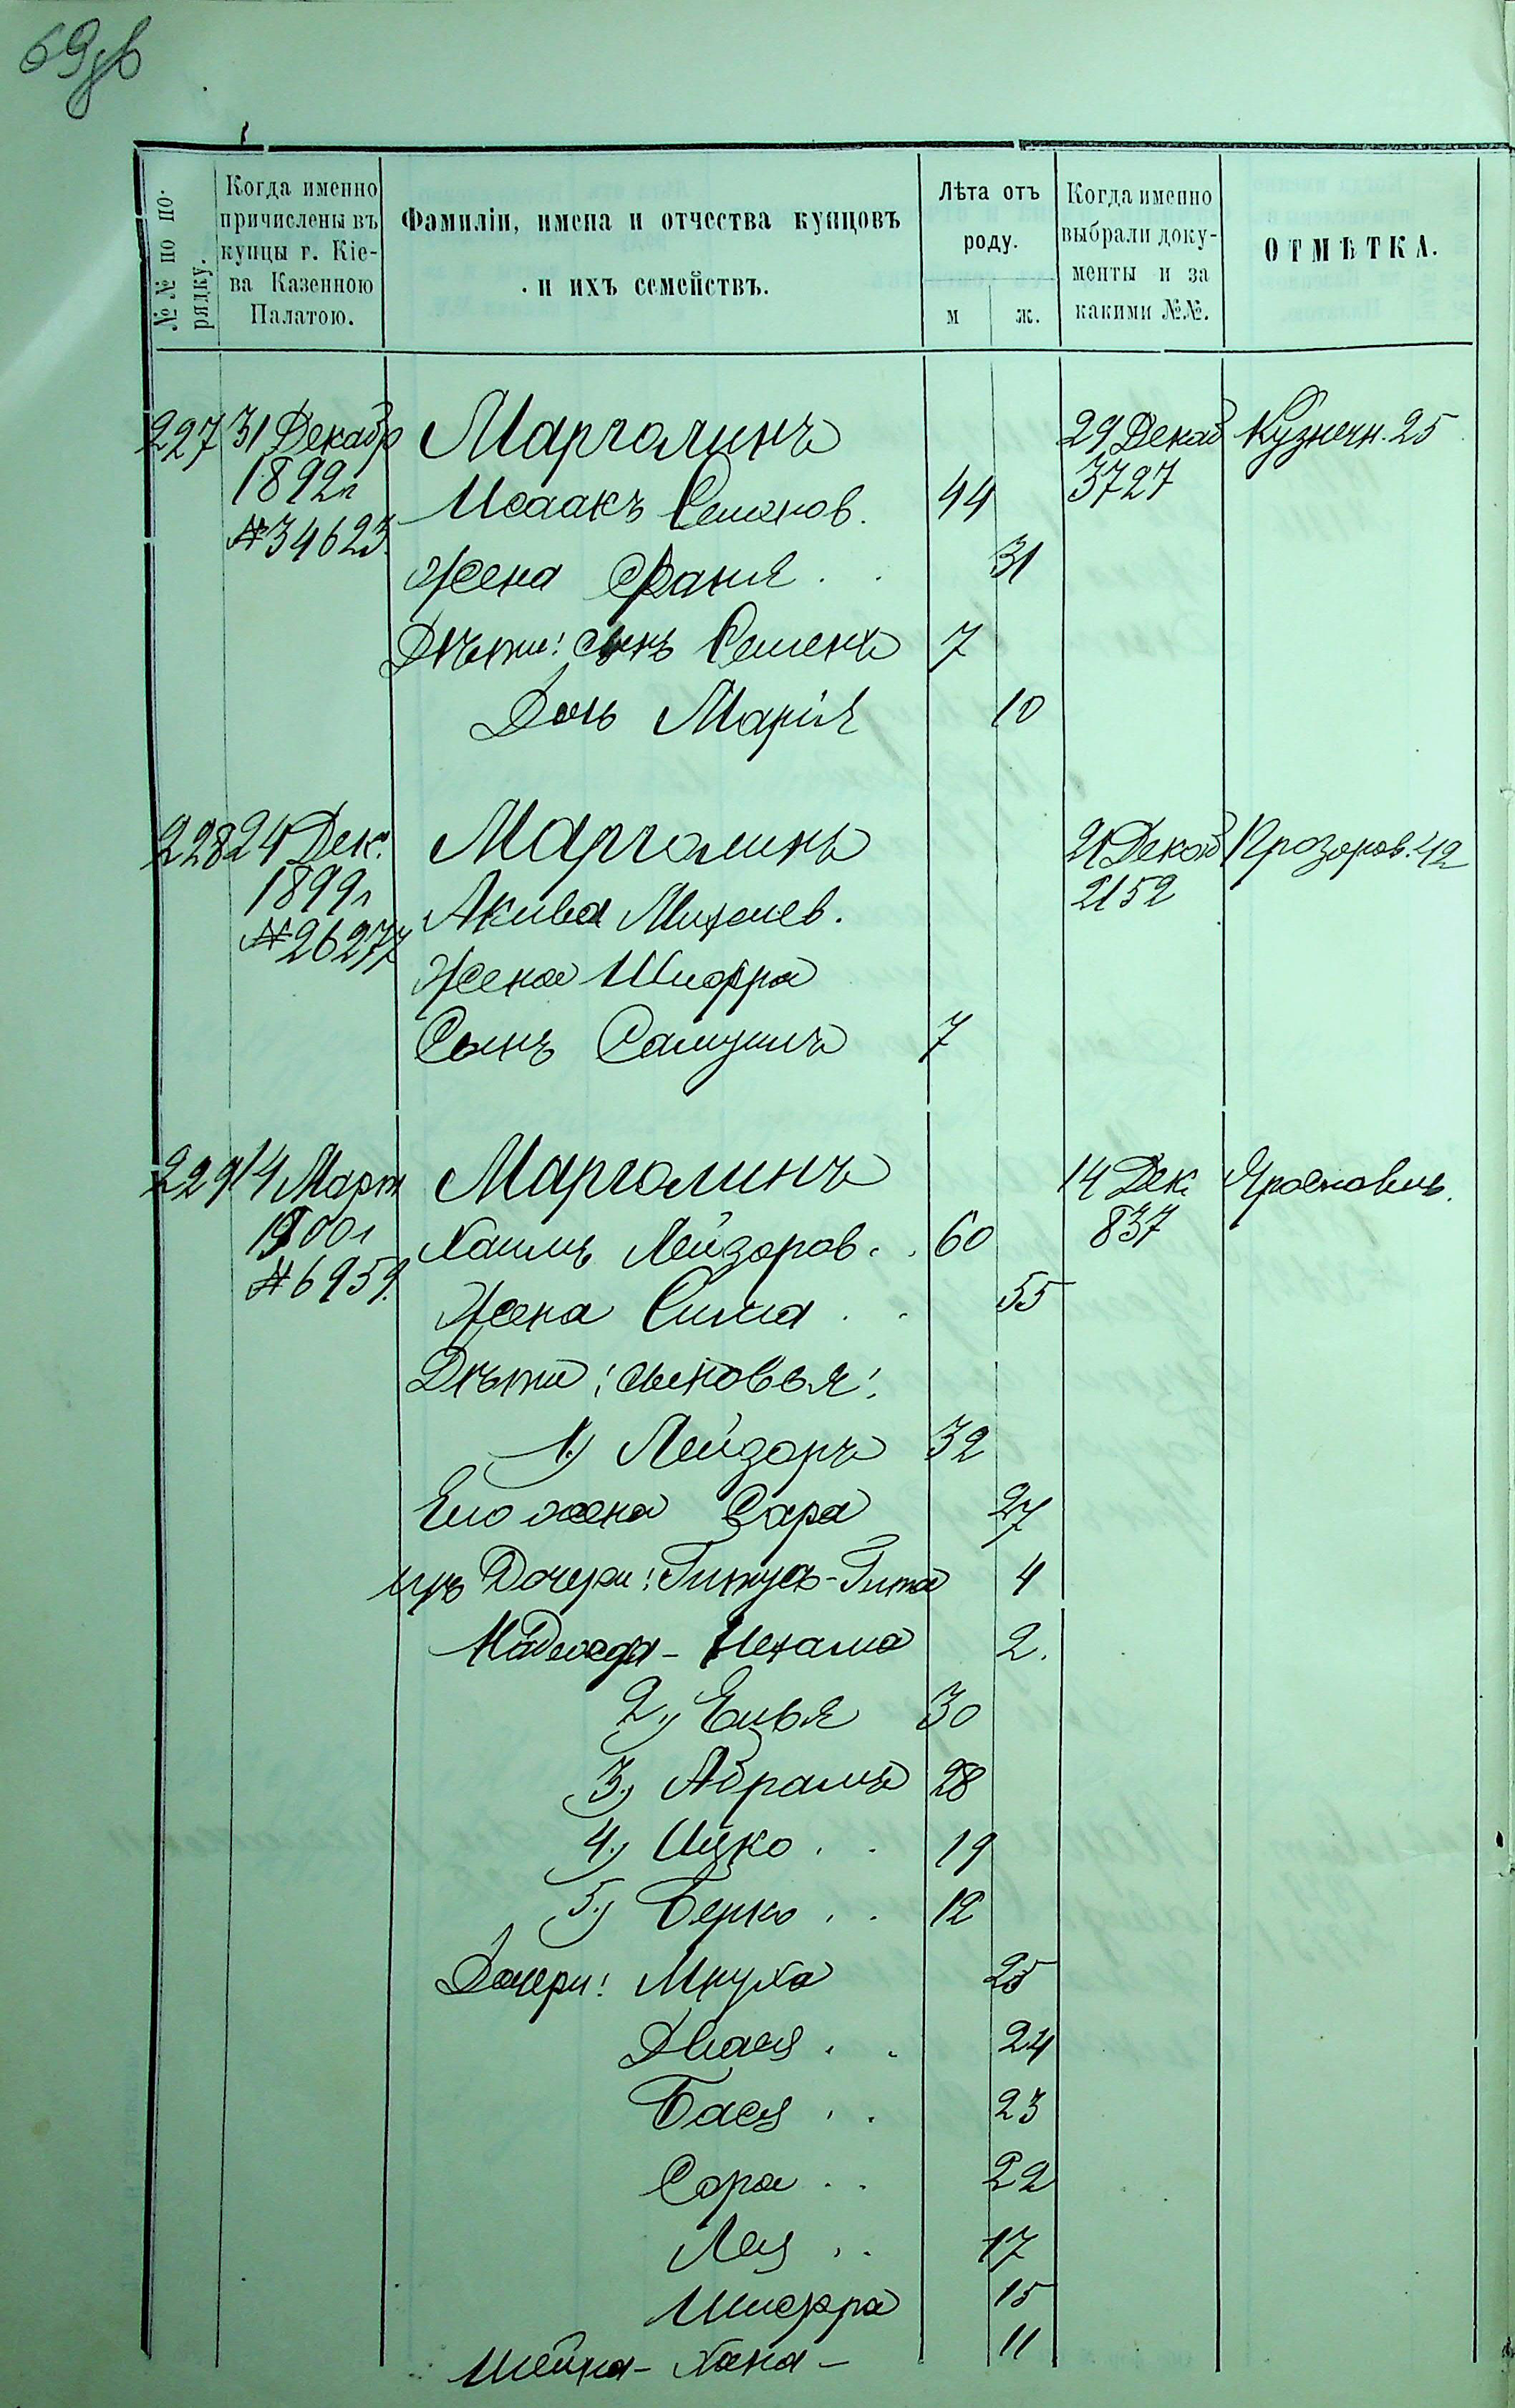 69об
№№ по по-
рядку.
Когда именно
причислены въ
купцы г. Кіе-
ва Казенною
Палатою.
Фамиліи, имена и отчества купцовъ
и ихъ семействъ.
Лѣта отъ
роду.
м
ж.
Когда именно
выбрали доку-
менты и за
какими №№.
ОТМѢТКА.
227 31 Декабр Марголинъ 29 Декаб Кузнечн. 25
1892г Исаакъ Семенов. 44 3727
№34623. Жена Фаня . . 31
Дѣти: сынъ Семенъ 7
Дочь Марія 10
228 24 Дек. Марголинъ 21 Декаб Прозоров. 42
1899г Акива Михелев. 2152
№26277 Жена Шифра
Сынъ Самуилъ 7
229 14 Март Марголинъ 14 Дек. Ярославъ.
1900г Хаимъ Лейзоров. . 60 837
№6959. Жена Сима . . 55
Дѣти: сыновья:
1) Лейзоръ 32
Его жена Сара 27
ихъ Дочери: Гитуся-Гита 4
Надежда-Нехама 2.
2) Елья 30
3) Абрамъ 28
4) Ицко . . 19
5) Берко . . 12
Дочери: Мнуха 25
Двася . . 24
Бася . . 23
Сора . . 22
Лея . . 17
Шифра 15
Шейна-Хана- 11